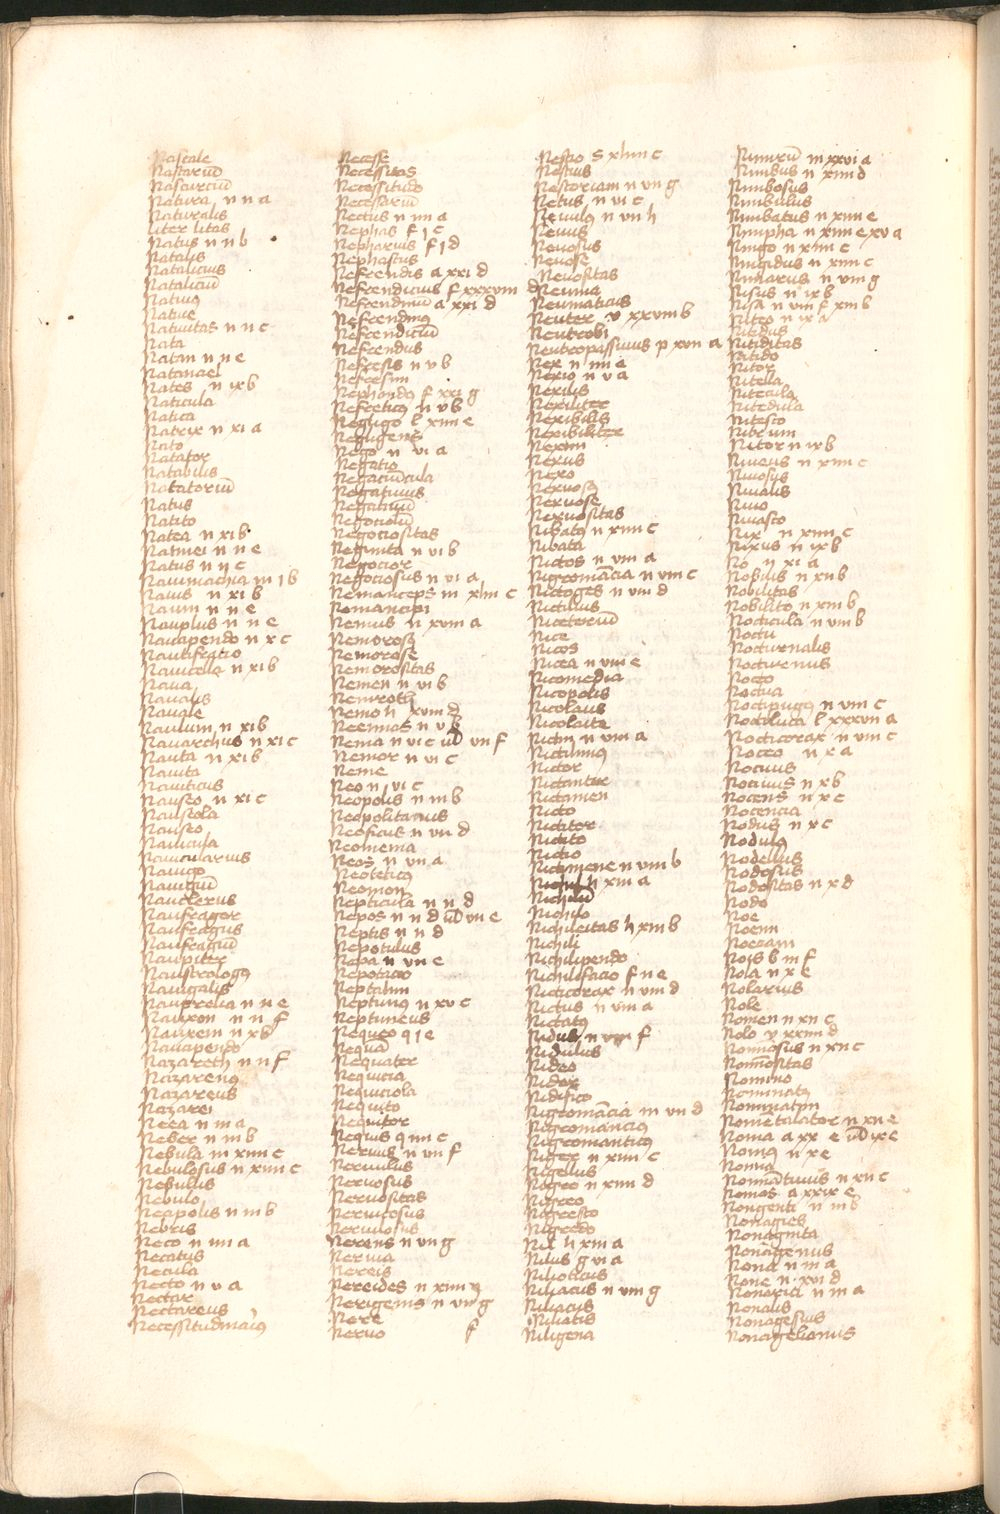 Nascale
Nastarcium
Nascurciū
Natura n n a
Naturalis
liter litas
Natus n n b
Natalis
Natalicius
Nataliciū
Natiuus
Natiue
Natiuitas n n c
Nata
Natan n n e
Natanael
Nates n ix b
Naticula
Natica
Natrix n xi a
Nato
Natator
Natabilis
Natatoriū
Natus
Natito
Natea n xi b
Natinei n n e
Natus n ij c
Naumachia m j b
Nauis n xi b
Naum n n e
Nauplus n n e
Nauapendo n x c
Nauifragio
Nauicella n xi b
Naua
Naualis
Nauale
Naulum n xi b
Nauarchus n xi c
Nauta n xi b
Nauita
Nauticus
Nauseo n xi c
Nauseola
Nauseo
Nauicula
Nauicularius
Nauigo
Nauigiū
Nauclerus
Naufragor
Naufragus
Naufragiū
Naupiter
Naustrologus
Nauigalis
Nauprelia n n e
Nauxon n n f
Nauxem n x b
Nauapendo
Nazareth n n f
Nazarenus
Nazareus
Nazarei
Neea n m a
Neber n m b
Nebula m xiiii c
Nebulosus n xiiii c
Nebulis
Nebulo
Neapolis n m b
Nebris
Neco n iiii a
Necatus
Necula
Necto n v a
Nectar
Nectareus
Necessitudinarius
Necesse
Necessitas
Necessitudo
Necessariū
Nectus n iiii a
Nephas f j c
Nepharius f j d
Nephastus
Nefrendis a xxi d
Nefrendicius f xxxviii d
Nefrendiniū a xxi d
Nefrendinus
Nefrendiciū
Nefrendus
Nefresis n v b
Nefresim
Nephandus f xxi g
Nefreticus n v b
Negligo l xiiii e
Negligens
Nego n vi a
Negatio
Negaciūcula
Negatiuus
Negatiuū
Negociolū
Negociositas
Neginita n vi b
Negocior
Negociosus n vi a
Nemanceps m xliii c
Nemancipi
Nemus n xviii a
Nemorosus
Nemorose
Nemorositas
Nemen n vi b
Nemroth
Nemo h xviii d
Neemias n v b
Nema n vi c ul vn f
Nemor n vi c
Neme
Neo n vi c
Neopolis n m b
Neopolitanus
Neoficus n vn d
Neomenia
Neos n vn a
Neoteticus
Neomon
Nepticula n n d
Nepos n n d ul vn e
Neptis n n d
Nepotulus
Nepa n vn e
Nepotatio
Neptalim
Neptunus n xv c
Neptuneus
Nequeo q j e
Nequā
Nequater
Nequicia
Nequiciola
Nequito
Nequitor
Nequis q iiii c
Neruus n vn f
Neruulus
Neruosus
Neruositas
Neruicosus
Neruulosus
Nerens n vn g
Neruia
Nereis
Nereides n xiiii g
Nerigenis n vn g
Nere
Neruo f
Nesto s xliiii c
Nestius
Nestoriam n vn g
Netus n vi c
Neuulus n vn h
Neuus
Neuosus
Neuose
Neuositas
Neuma
Neumaticus
Neuter v xxviii b
Neutrobi
Neutropassiuus p xvn a
Nex n iiii e
Nexio n v a
Nexilis
Nexiliter
Nexibilis
Nexibiliter
Nexim
Nexus
Nexo
Nexuosus
Nexuose
Nexuositas
Nibatus n xiiii c
Nibata
Nictos n viii a
Nigromācia n viii c
Nictoges n viii d
Nictilius
Niceteriū
Nice
Nicos
Nicea n viii e
Nicomedia
Nicopolis
Nicolaus
Nicolaita
Nictin n viii a
Nictinnus
Nictor
Nictanter
Nictamen
Nicto
Nictitor
Nictito
Nictio
Nictimene n viii b
Nichil h xiii a
Nichilū
Nichilo
Nichileitas h xiii b
Nichili
Nichilipendo
Nichilifacio f n e
Nicticorax n viii d
Nictus n viii a
Nictatus
Nidus n viii f
Nidulus
Nideo
Nidor
Nidifico
Nigromācia m vn d
Nigromancius
Nigromanticus
Niger n xiiii c
Nigellus
Nigro n xiiii d
Nigreo
Nigresco
Nigredo
Nil h xiii a
Nilus g vi a
Nilioticus
Niliacus n viii g
Niliatus
Niliatis
Niligena
Nimirū m xxvi a
Nimbus n xiiii d
Nimbosus
Nimbulus
Nimbatus n xiiii e
Nimpha n xiiii e xv a
Ningo n xiiii c
Ningidus n xiiii c
Niniarus n viii g
Nisus n ix b
Nisa n viii f xiii b
Niteo n ix a
Nitidus
Nitiditas
Nitido
Nitor
Nitella
Nitecula
Nitedula
Nitesco
Nitrum
Nitor n ix b
Niueus n xiiii c
Niuosus
Niualis
Niuo
Niuasco
Nix n xiiii c
Nixus n ix b
No n xi a
Nobilis n xn b
Nobilitas
Nobilito n xiii b
Nocticula n viii b
Noctu
Nocturnalis
Nocturnus
Nocto
Noctua
Noctipugus n viii c
Noctiluca l xxxvn a
Nocticorax n viii c
Noceo n x a
Nocuus
Nociuus n x b
Nocens n x c
Nocencia
Nodus n x c
Nodulus
Nodellus
Nodosus
Nodositas n x d
Nodo
Noe
Noemi
Noezam
Nois b m f
Nola n x e
Nolarius
Nole
Nomen n xn c
Nolo v xxiiii d
Nominosus n xn c
Nominositas
Nomino
Nominatus
Nominatim
Nomēculator n xn e
Noma a xx e ul ix e
Nomus n x e
Nomia
Nominatiuus n xn c
Nomos a xxix e
Nongenti n m b
Nonagies
Nonaginta
Nonagenus
Nona n m a
None n xvi d
Nonarici n m a
Nonalis
Nonagesius
Nonagelianus